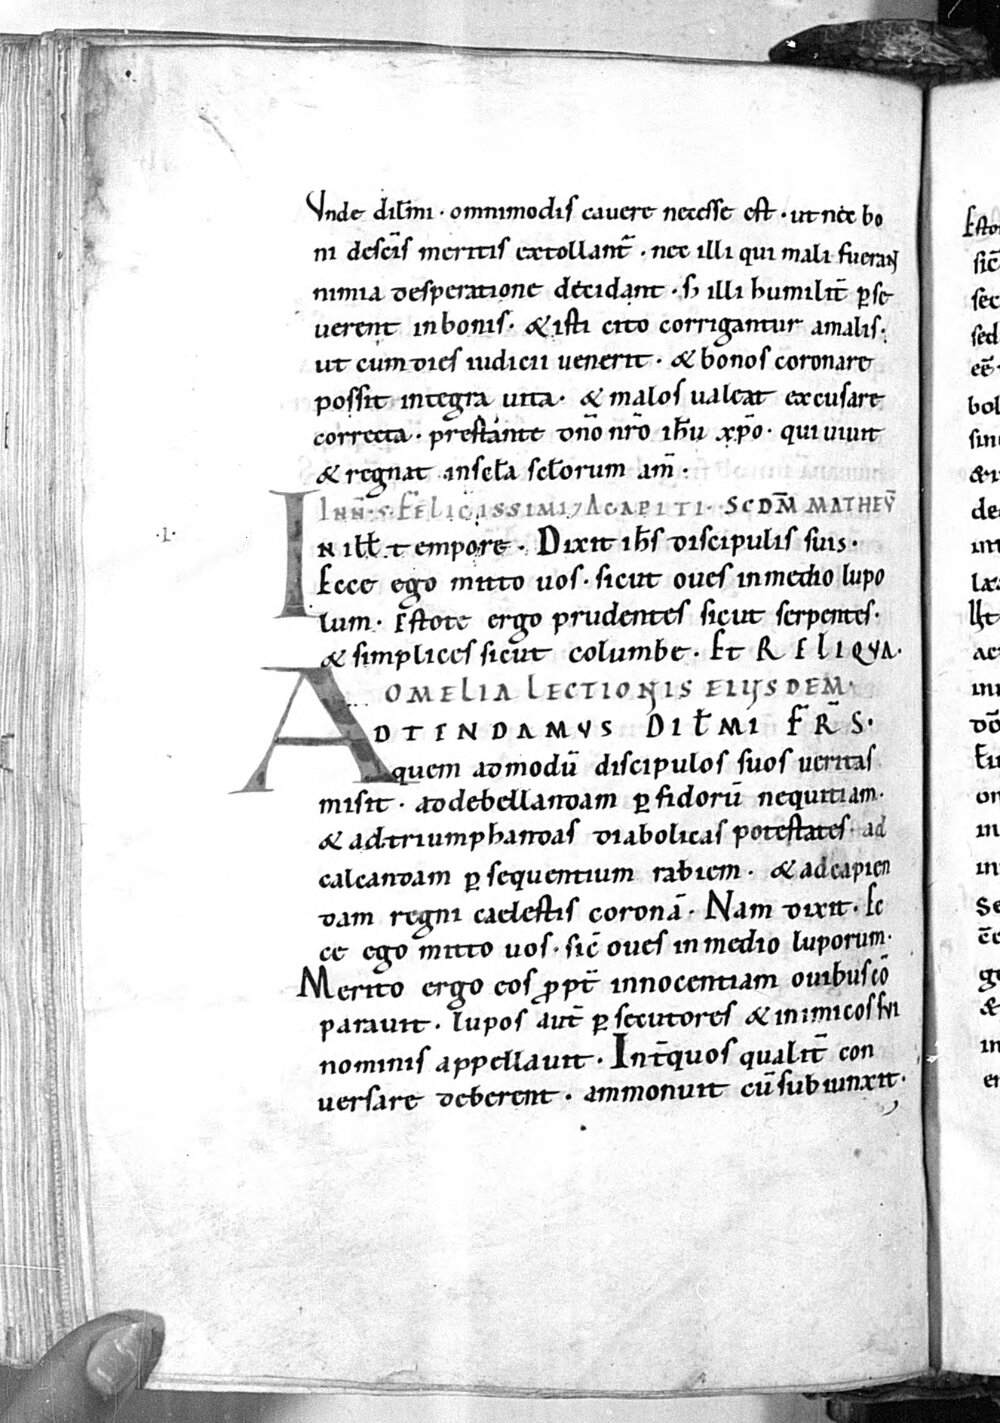 Vnde dil̄mi · omnimodis cauere necesse est · ut nec bo
ni de sc̄is meritis extollant̄ · nec illi qui mali fuerant
nimia desperatione decidant · s; illi humilit̄ ꝑse
uerent in bonis · & isti cito corrigantur a malis ·
ut cum dies iudicii uenerit · & bonos coronare
possit integra uita · & malos ualeat excusare
correcta · prestante dn̄o nr̄o ih̄u xp̄o · qui uiuit
& regnat in scl̄a scl̄orum am̄ ·
IN N̄ · S · FELICISSIMI, AGAPITI · SCDM̄ MATHEV̄
·I·
IN ill̄ · tempore · Dixit ih̄s discipulis suis ·
Ecce ego mitto uos · sicut oues in medio lupo
rum · Estote ergo prudentes sicut serpentes ·
& simplices sicut columbe · ET RELIQVA ·
OMELIA LECTIONIS EIUSDEM ·
ADTENDAMVS DIL̄MI FR̄S ·
quem admodū discipulos suos ueritas
misit · ad debellandam ꝑfidorū nequitiam ·
& ad triumphandas diabolicas potestates · ad
calcandam ꝑsequentium rabiem · & ad capien
dam regni caelestis coronā · Nam dixit · Ec
ce ego mitto uos · sic̄ oues in medio luporum ·
Merito ergo eos ꝓpt̄ innocentiam ouibus cō
parauit · lupos aut̄ ꝑsecutores & inimicos sui
nominis appellauit · Int̄ quos qualit̄ con
uersare deberent · ammonuit cū subiunxit ·
Esto
sic̄
sec
sed
eē
bol
sin
& i
de
int
lax
ac
in
dō
Eu
on
in
in
Se
c̄e
ge
&
in
er